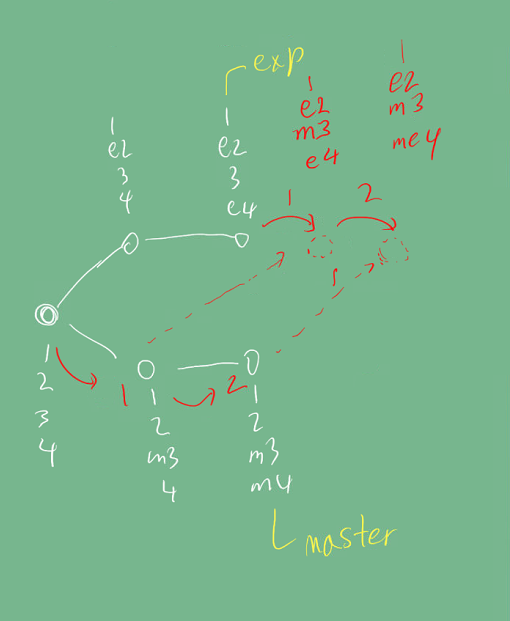 exp
1
e2
3
4
1
e2
3
e4
1
e2
m3
e4
1
e2
m3
me4
1
2
1
2
3
4
1
1
2
m3
4
2
1
2
m3
m4
master